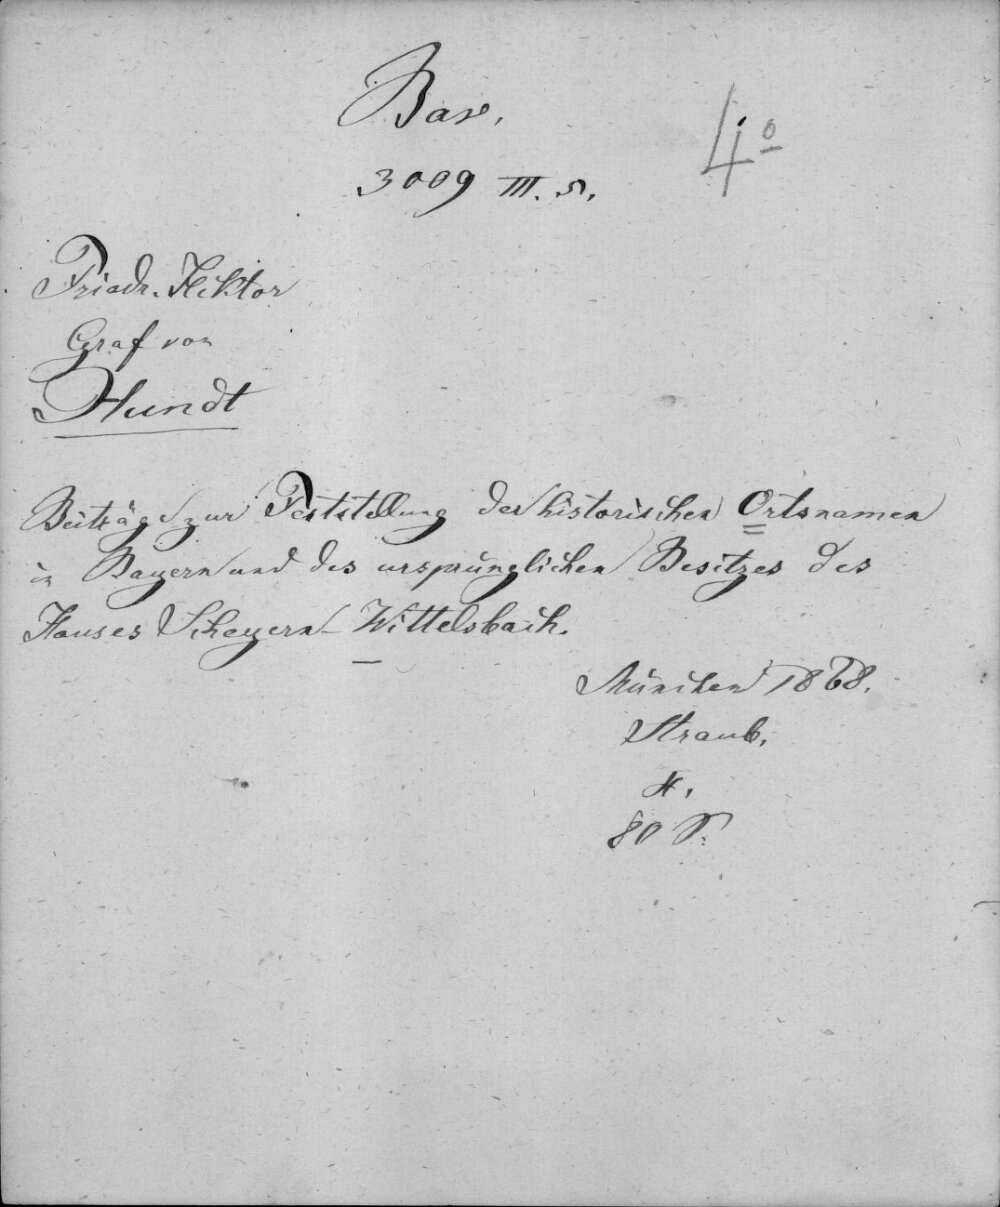 Bav.
4°
3009 III. s.
Friedr. Hektor
Graf von
Hundt
Beiträge zur Feststellung der historischen Ortsnamen
in Bayern und des ursprünglichen Besitzes des
Hauses Scheyern-Wittelsbach.
München 1868.
Straub.
4.
80 S.